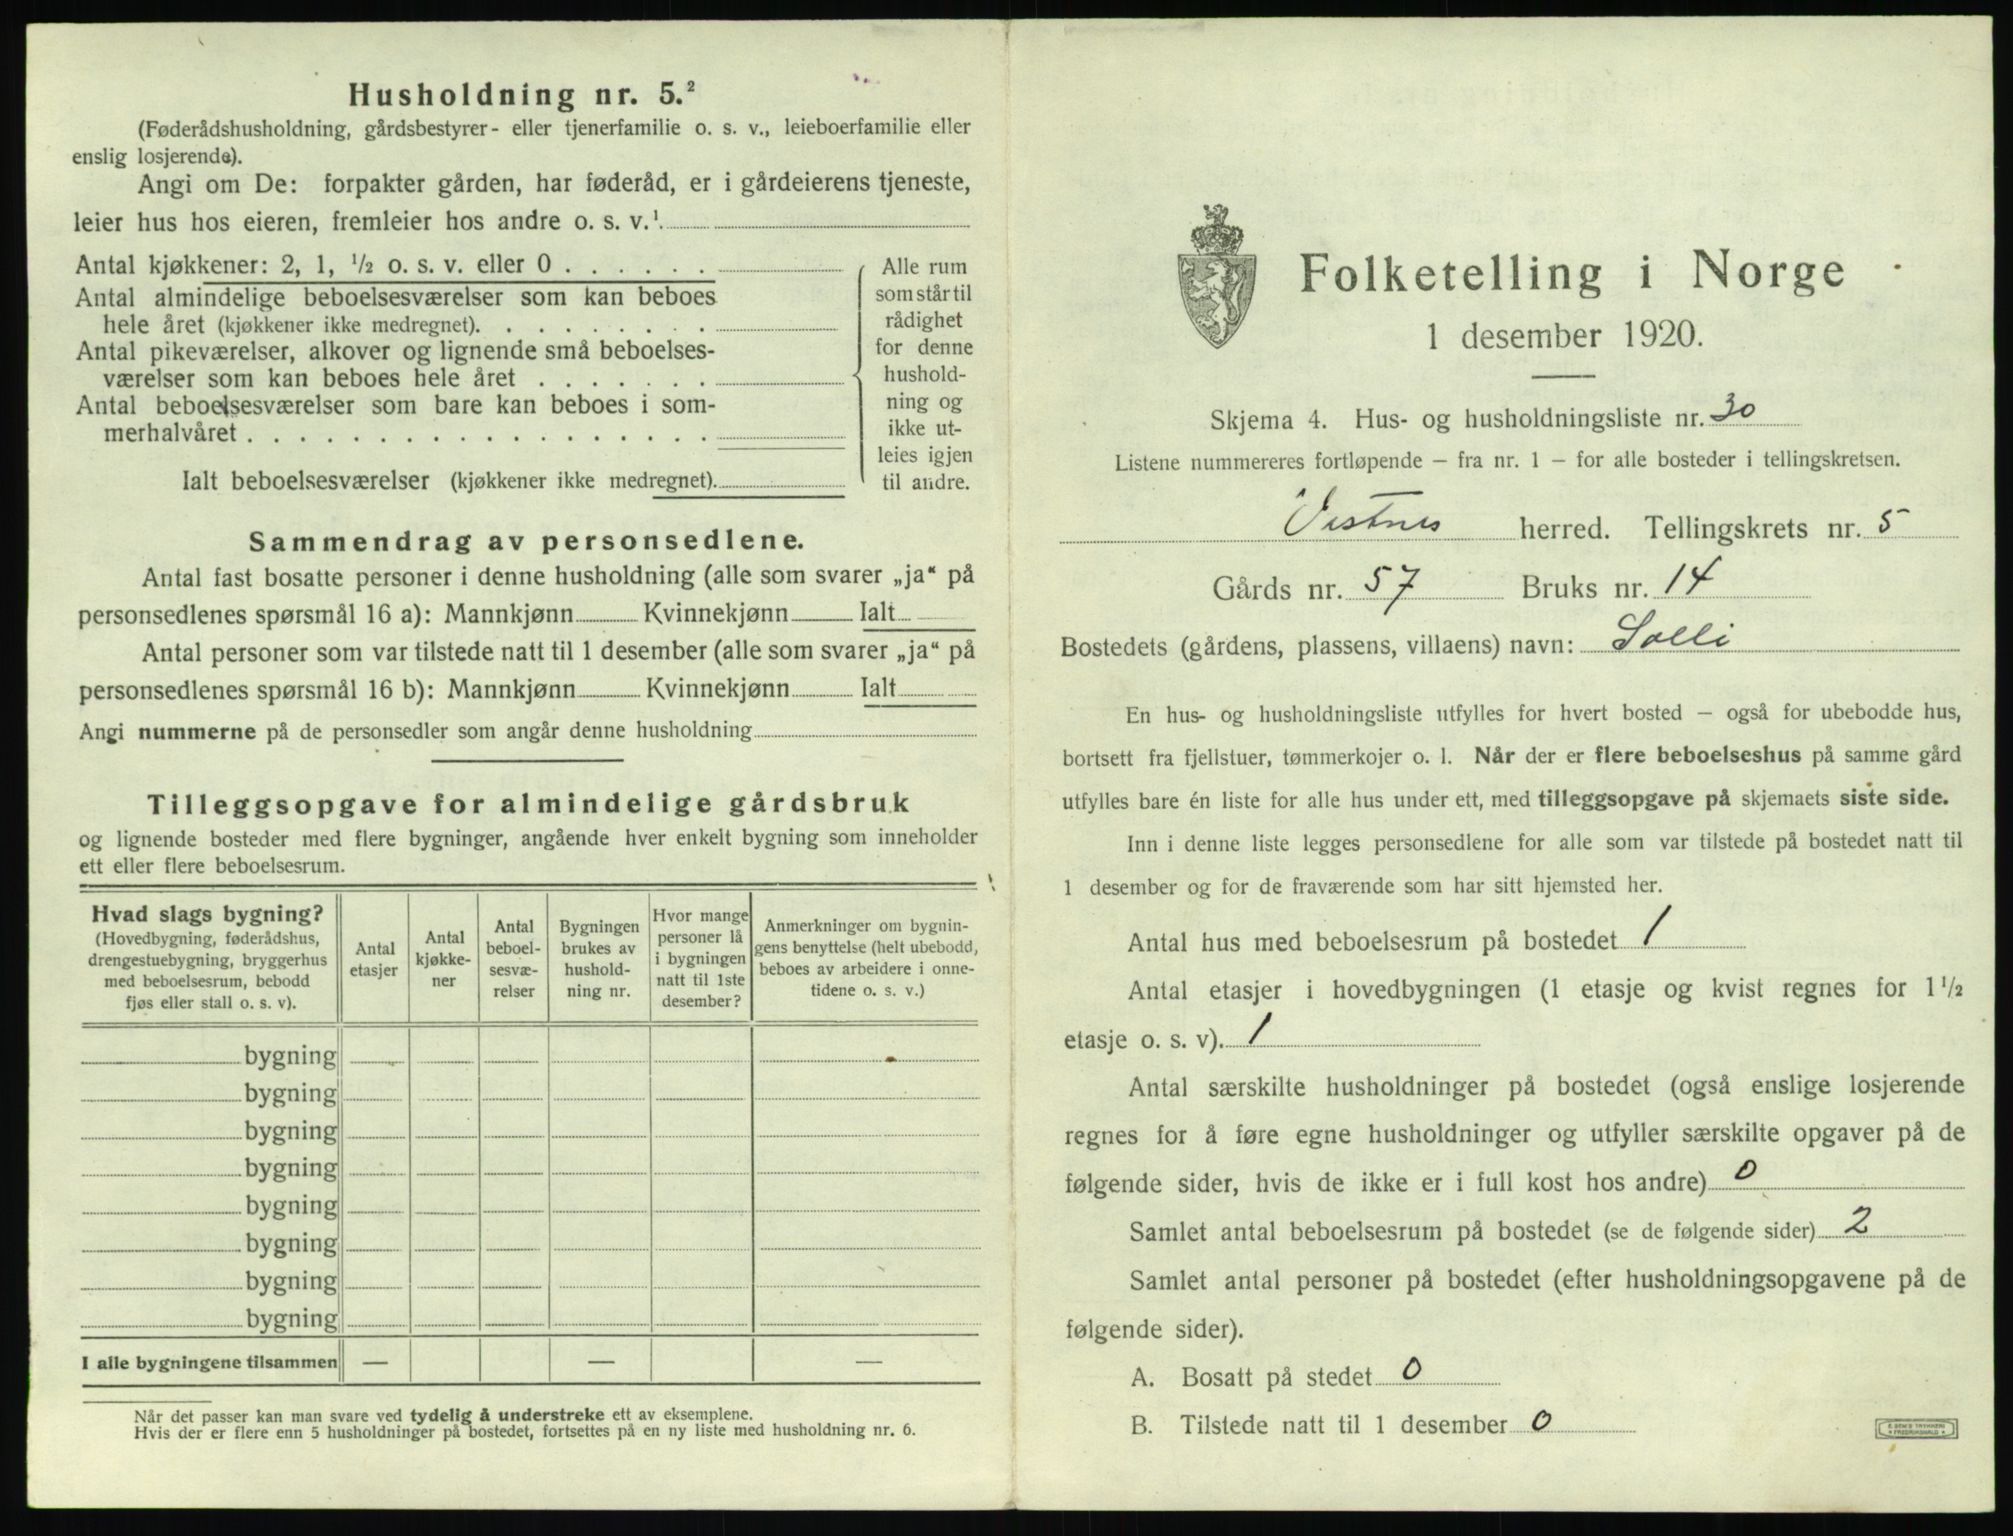 Husholdning nr. 5.²
(Føderådshusholdning, gårdsbestyrer- eller tjenerfamilie o. s. v., leieboerfamilie eller
enslig losjerende).
Angi om De: forpakter gården, har føderåd, er i gårdeierens tjeneste,
leier hus hos eieren, fremleier hos andre o. s. v.¹
Antal kjøkkener: 2, 1, ½ o. s. v. eller 0 . . . . . .
Antal almindelige beboelsesværelser som kan beboes
hele året (kjøkkener ikke medregnet). . . . . . . . .
Antal pikeværelser, alkover og lignende små beboelses-
værelser som kan beboes hele året . . . . . . .
Antal beboelsesværelser som bare kan beboes i som-
merhalvåret . . . . . . . . . . . . . . . . . .
Ialt beboelsesværelser (kjøkkener ikke medregnet).
Alle rum
som står til
rådighet
for denne
hushold-
ning og
ikke ut-
leies igjen
til andre.
Sammendrag av personsedlene.
Antal fast bosatte personer i denne husholdning (alle som svarer „ja“ på
personsedlenes spørsmål 16 a): Mannkjønn Kvinnekjønn Ialt
Antal personer som var tilstede natt til 1 desember (alle som svarer „ja“ på
personsedlenes spørsmål 16 b): Mannkjønn Kvinnekjønn Ialt
Angi nummerne på de personsedler som angår denne husholdning
Tilleggsopgave for almindelige gårdsbruk
og lignende bosteder med flere bygninger, angående hver enkelt bygning som inneholder
ett eller flere beboelsesrum.
Hvad slags bygning?
(Hovedbygning, føderådshus,
drengestuebygning, bryggerhus
med beboelsesrum, bebodd
fjøs eller stall o. s. v).
Antal
etasjer
Antal
kjøkke-
ner
Antal
beboel-
sesvæ-
relser
Bygningen
brukes av
hushold-
ning nr.
Hvor mange
personer lå
i bygningen
natt til 1ste
desember?
Anmerkninger om bygnin-
gens benyttelse (helt ubebodd,
beboes av arbeidere i onne-
tidene o. s. v.)
bygning
bygning
bygning
bygning
bygning
bygning
bygning
bygning
I alle bygningene tilsammen — — —
Når det passer kan man svare ved tydelig å understreke ett av eksemplene.
Hvis der er flere enn 5 husholdninger på bostedet, fortsettes på en ny liste med husholdning nr. 6.
Folketelling i Norge
1 desember 1920.
Skjema 4. Hus- og husholdningsliste nr. 30
Listene nummereres fortløpende — fra nr. 1 — for alle bosteder i tellingskretsen.
Vestnes herred. Tellingskrets nr. 5
Gårds nr. 57 Bruks nr. 14
Bostedets (gårdens, plassens, villaens) navn: Solli
En hus- og husholdningsliste utfylles for hvert bosted — også for ubebodde hus,
bortsett fra fjellstuer, tømmerkojer o. l. Når der er flere beboelseshus på samme gård
utfylles bare én liste for alle hus under ett, med tilleggsopgave på skjemaets siste side.
Inn i denne liste legges personsedlene for alle som var tilstede på bostedet natt til
1 desember og for de fraværende som har sitt hjemsted her.
Antal hus med beboelsesrum på bostedet 1
Antal etasjer i hovedbygningen (1 etasje og kvist regnes for 1½
etasje o. s. v). 1
Antal særskilte husholdninger på bostedet (også enslige losjerende
regnes for å føre egne husholdninger og utfyller særskilte opgaver på de
følgende sider, hvis de ikke er i full kost hos andre) 0
Samlet antal beboelsesrum på bostedet (se de følgende sider) 2
Samlet antal personer på bostedet (efter husholdningsopgavene på de
følgende sider).
A. Bosatt på stedet 0
B. Tilstede natt til 1 desember 0
E. SEM'S TRYKKERI
FREDRIKSHALD